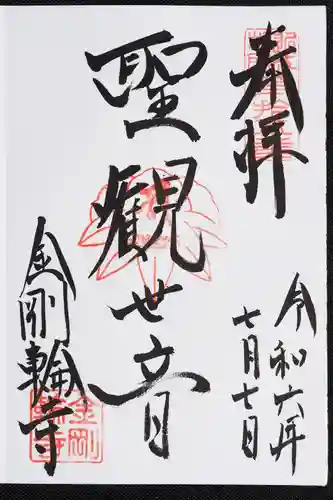 奉拝
令和六年
七月七日
聖観世音
金剛輪寺
金剛
輪寺